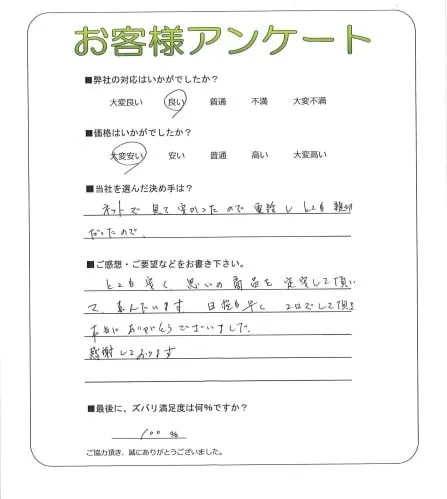 お客様アンケート
■弊社の対応はいかがでしたか?
大変良い 良い 普通 不満 大変不満
■価格はいかがでしたか?
大変安い 安い 普通 高い 大変高い
■当社を選んだ決め手は?
ネットで見て安かったので電話しとても親切
だったので、
■ご感想・ご要望などをお書き下さい。
とても安く、思いの商品を して頂い
て、喜んでいます。日程も早く 2日でして頂き
本当にありがとうございました。
感謝しております
■最後に、ズバリ満足度は何%ですか?
100 %
ご協力頂き、誠にありがとうございました。